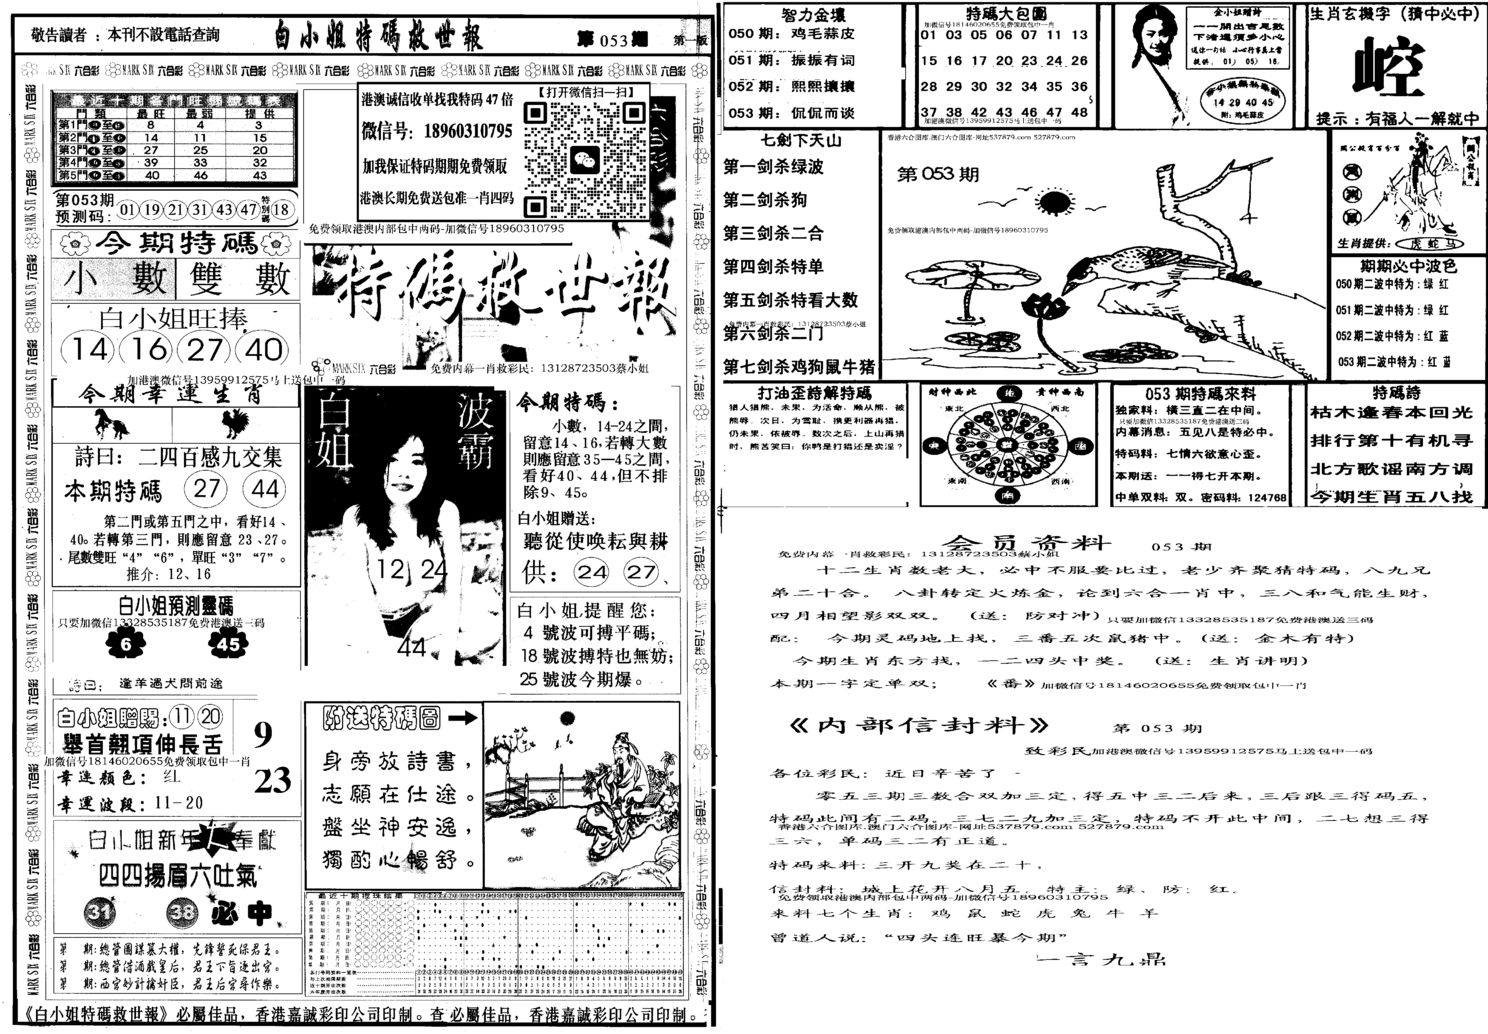 敬告讀者：本刊不設電話查詢
白小姐特碼救世報
第053期
第一版
MARK SIX 六合彩
最近十期各門旺弱號碼表
門類 最旺 最弱 提供
第1門 8 4 3
第2門 14 11 15
第3門 27 25 20
第4門 39 33 32
第5門 40 46 43
第053期
预测码：01 19 21 31 43 47 特別碼 18
今期特碼
小數 雙數
白小姐旺捧
14 16 27 40
加港澳微信号13959912575马上送包中一码
今期幸運生肖
詩曰：二四百感九交集
本期特碼 27 44
第二門或第五門之中，看好14、
40。若轉第三門，則應留意 23、27。
尾數雙旺“4” “6”，單旺“3” “7”。
推介：12、16
白小姐預測靈碼
只要加微信13328535187免费港澳送三码
6 45
詩曰：逢羊遇犬問前途
白小姐贈賜：11 20
舉首翹項伸長舌
加微信号18146020655免费领取包中一肖
幸运颜色：红
幸運波段：11-20
9
23
白小姐新年 奉獻
四四揚眉六吐氣
31 38 必中
第 期:總管圖謀篡大權，先鋒誓死保君王。
第 期:總管借酒戲皇后，君王下旨逐出宮。
第 期:西宮妙計擒奸臣，君王后宮尋作樂。
港澳诚信收单找我特码 47 倍
微信号：18960310795
加我保证特码期期免费领取
港澳长期免费送包准一肖四码
【打开微信扫一扫】
免费领取港澳内部包中两码-加微信号18960310795
特碼救世報
MARK SIX 六合彩
免费内幕一肖救彩民：13128723503蔡小姐
白姐
波霸
12 24
44
今期特碼：
小數，14-24之間，
留意14、16，若轉大數
則應留意35—45之間，
看好40、44，但不排
除9、45。
白小姐贈送：
聽從使唤耘與耕
供：24 27、
白小姐提醒您：
4 號波可搏平碼；
18 號波搏特也無妨；
25 號波今期爆。
附送特碼圖
身旁放詩書，
志願在仕途。
盤坐神安逸，
獨酌心暢舒。
最近十期攪珠結果
《白小姐特碼救世報》必屬佳品，香港嘉誠彩印公司印制。查 必屬佳品，香港嘉誠彩印公司印制。
智力金壤
050 期：鸡毛蒜皮
051 期：振振有词
052 期：熙熙攘攘
053 期：侃侃而谈
特碼大包圍
加微信号18146020655免费领取包中一肖
01 03 05 06 07 11 13
15 16 17 20 23 24 26
28 29 30 32 34 35 36
37 38 42 43 46 47 48
加港澳微信号13959912575马上送包中一码
金小姐贈詩
一一開出合尾數
下渚還須多小心
送你一句话 小心行事易上當
提供：01) 05) 16.
14 29 40 45
附：鸡毛蒜皮
生肖玄機字（猜中必中）
崆
提示：有福人一解就中
七劍下天山
第一剑杀绿波
第二剑杀狗
第三剑杀二合
第四剑杀特单
第五剑杀特看大数
免费内幕一肖救彩民：13128723503蔡小姐
第六剑杀二门
第七剑杀鸡狗鼠牛猪
香港六合图库.澳门六合图库-网址537879.com 527879.com
第 053 期
免费领取港澳内部包中两码-加微信号18960310795
生肖提供：虎 蛇 马
期期必中波色
050期二波中特为：绿 红
051期二波中特为：绿 红
052期二波中特为：红 蓝
053期二波中特为：红 蓝
打油歪詩解特碼
猎人猎熊，未果，为活命，顺从熊，被
熊辱。次日，为雪耻，携更利器再猎，
仍未果，依被辱。数次之后，上山再猎
时，熊苦笑曰：你鸭是打猎还是卖淫？
财神西北 贵神西南
东北 西北
東南 西南
053 期特碼來料
独家料：橫三直二在中间。
只要加微信13328535187免费港澳送三码
内幕消息：五见八是特必中。
特码料：七情六欲意心歪。
本期送：一一得七开本期。
中单双料：双。密码料：124768
特碼詩
枯木逢春本回光
排行第十有机寻
北方歌谣南方调
今期生肖五八找
会员资料 053 期
免费内幕一肖救彩民：13128723503蔡小姐
十二生肖数老大，必中不服要比过，老少齐聚猜特码，八九兄
第二十合。 八卦转定火炼金，论到六合一肖中，三八和气能生财，
四月相望影双双。 （送：防对冲）只要加微信13328535187免费港澳送三码
配： 今期灵码地上找，三番五次鼠猪中。（送：金木有特）
今期生肖东方找，一二四头中奖。（送：生肖讲明）
本期一字定单双； 《番》加微信号18146020655免费领取包中一肖
《内部信封料》 第 053 期
致彩民加港澳微信号13959912575马上送包中一码
各位彩民：近日辛苦了
零五三期三数合双加三定，得五中三二后来，三后跟三得码五，
特码此间有二码。三七二九加三定，特码不开此中间，二七想三得
香港六合图库.澳门六合图库-网址537879.com 527879.com
三六，单码三二有正道。
特码来料：三开九奖在二十，
信封料：城上花开八月五。特主：绿、防：红。
免费领取港澳内部包中两码-加微信号18960310795
来料七个生肖：鸡 鼠 蛇 虎 兔 牛 羊
曾道人说：“四头连旺暴今期”
一言九鼎